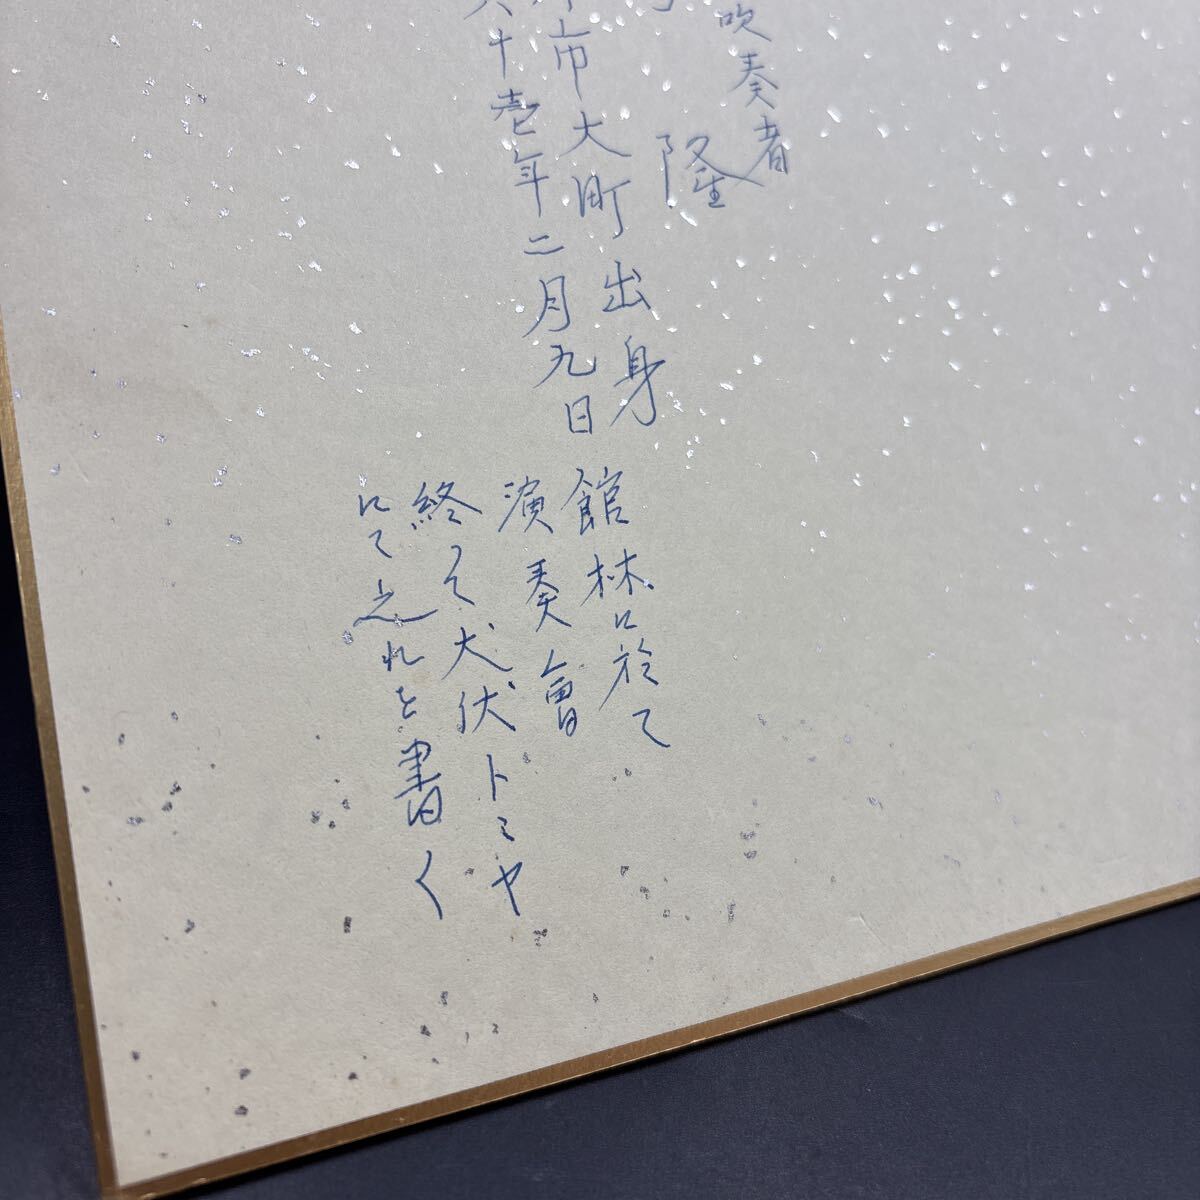 吹奏者
隆
市大町出身
十壱年二月九日
館林に於て
演奏會
終って犬伏トミヤ
にて之れを書く